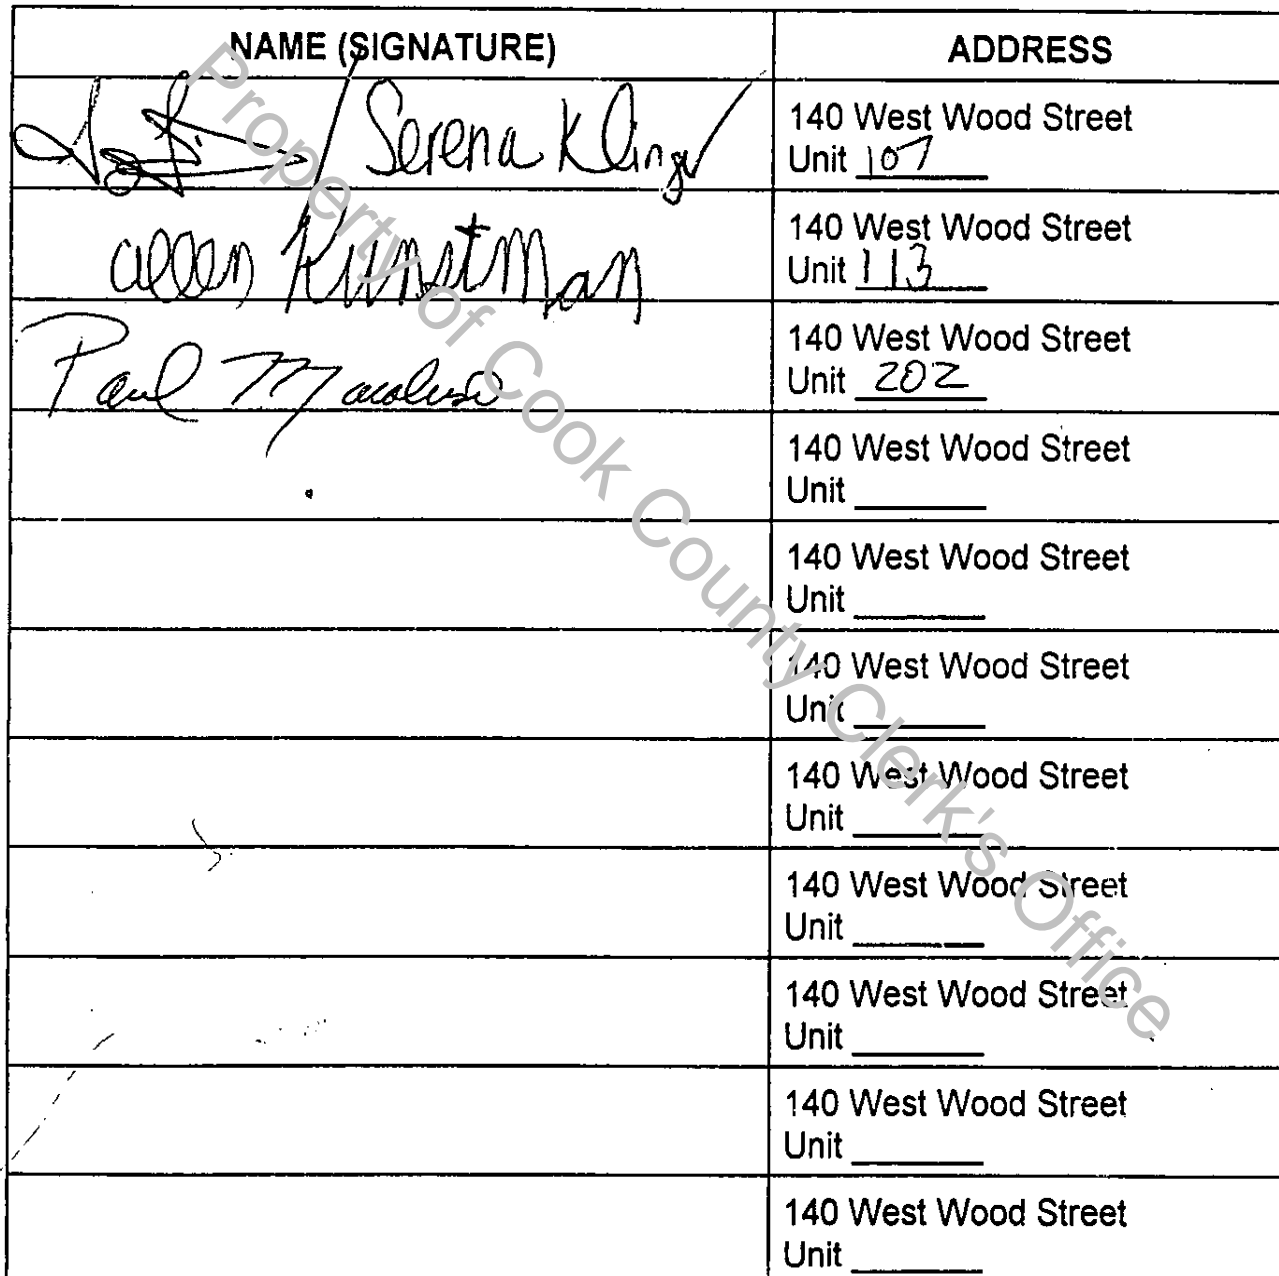 NAME (SIGNATURE) ADDRESS
/ Serena Klinger 140 West Wood Street
Unit 107
allen Kunstman 140 West Wood Street
Unit 113
Paul Macaluso 140 West Wood Street
Unit 202
140 West Wood Street
Unit
140 West Wood Street
Unit
140 West Wood Street
Unit
140 West Wood Street
Unit
140 West Wood Street
Unit
140 West Wood Street
Unit
140 West Wood Street
Unit
140 West Wood Street
Unit
Property of Cook County Clerk's Office